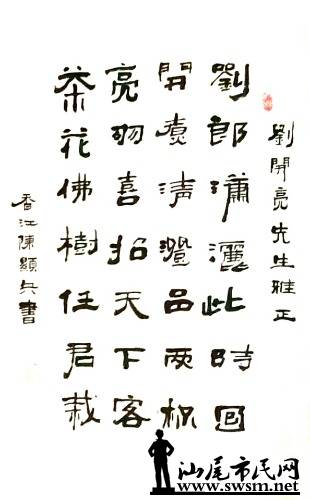 劉開亮先生雅正
劉郎瀟灑此時回
開清品两杯
亮明喜招天下客
茶花佛樹任君栽
香江陳顯兵書
汕尾市民网
www.swsm.net